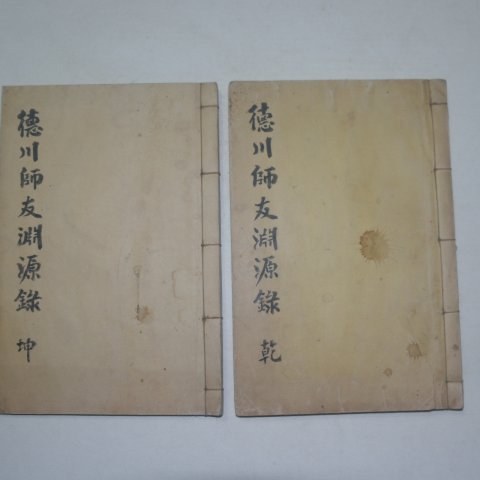 德川師友淵源錄 乾
德川師友淵源錄 坤